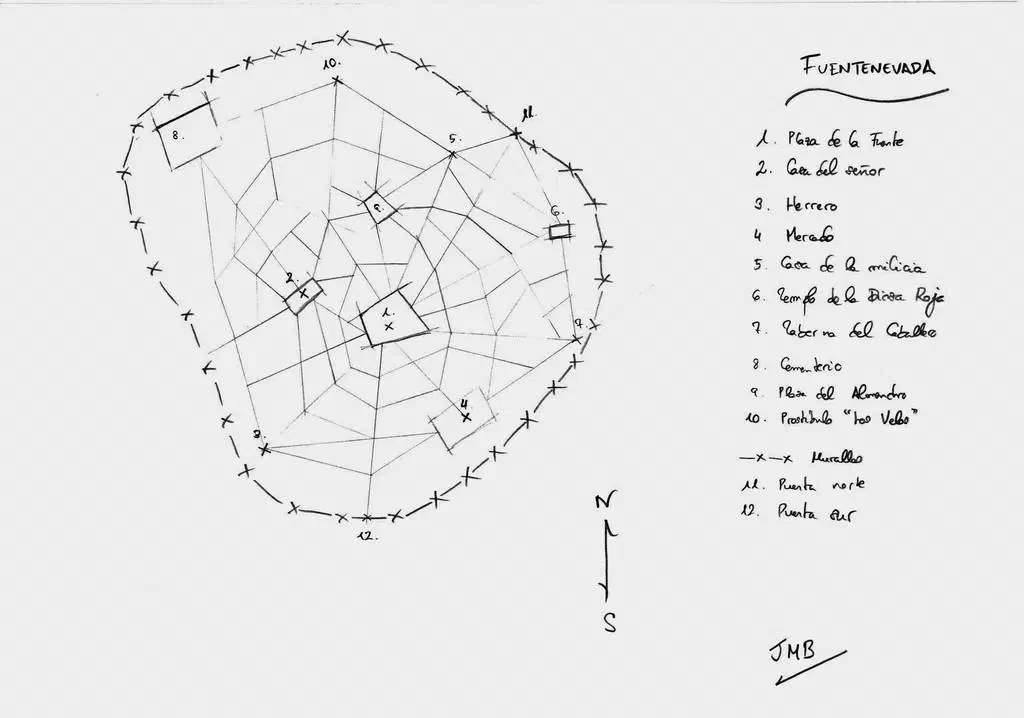 10.
11.
8.
5.
9.
6.
2.
1.
7.
4.
3.
12.
N
S
FUENTENEVADA
1. Plaza de la Fuente
2. Casa del señor
3. Herrero
4 Mercado
5. Casa de la milicia
6. Templo de la Diosa Roja
7. Taberna del Caballero
8. Cementerio
9. Plaza del Almendro
10. Prostíbulo "Los Velos"
—x—x Murallas
11. Puerta norte
12. Puerta sur
JMB